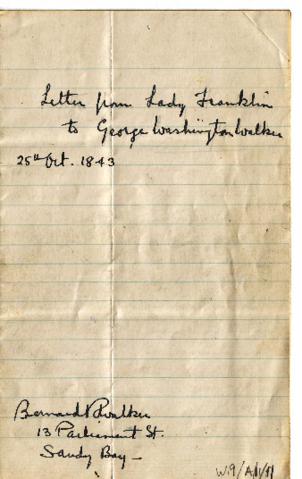 Letter from Lady Franklin
to George Washington Walker
25th Oct. 1843
Bernard Walker
13 Parliament St.
Sandy Bay —
W.9/A1/